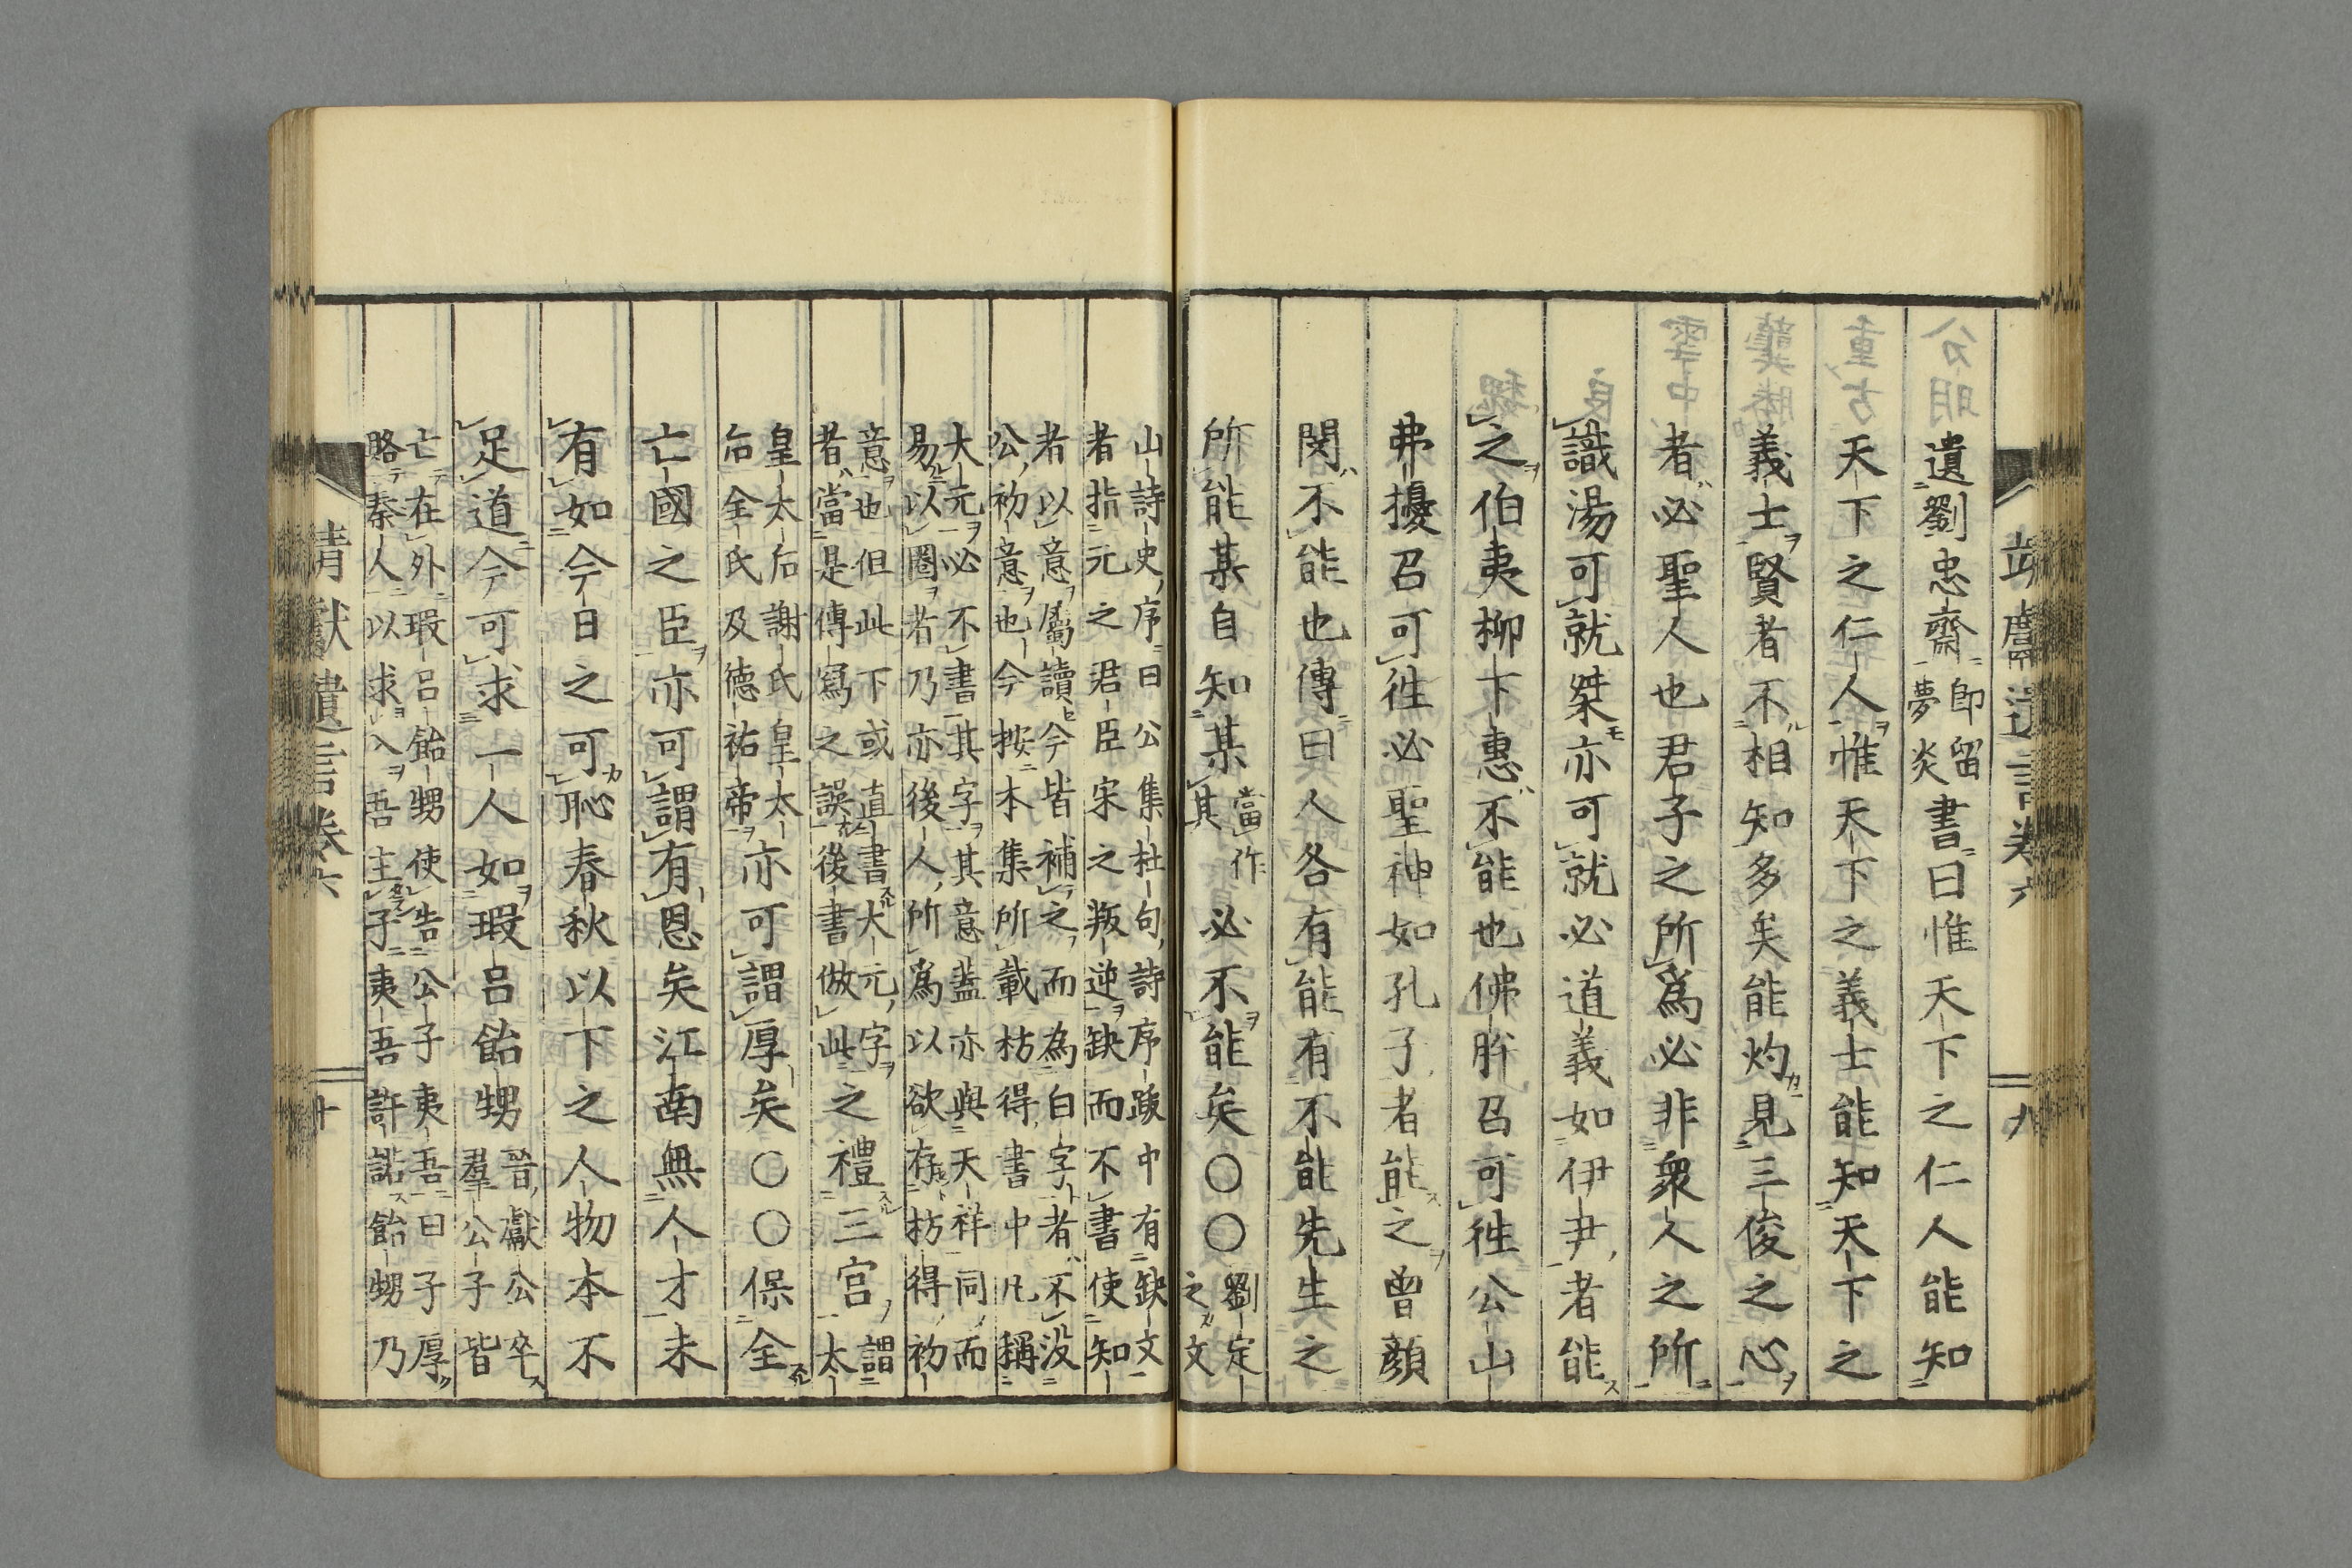 靖獻遺言卷六 九
遺劉忠齋
即留
夢炎
書曰惟天下之仁人能知
天下之仁人惟天下之義士能知天下之
義士賢者不相知多矣能灼見三俊之心
者必聖人也君子之所爲必非衆人之所
識湯可就桀亦可就必道義如伊尹者能
之伯夷柳下惠不能也佛肸召可徃公山
弗擾召可徃必聖神如孔子者能之曾顔
閔不能也傳曰人各有能有不能先生之
所能某自知某
當作
其
必不能矣○○
劉定
之文
山詩史序曰公集杜句詩序跋中有缺文
者指元之君臣宋之叛逆缺而不書使知
者以意屬讀今皆補之而為白字者不没
公初意也今按本集所載枋得書中凡稱
大元必不書其字其意盖亦與天祥同而
易以圈若乃亦後人所爲以欲存枋得初
意也但此下或直書大元字
者當是傳寫之誤後書倣此
之禮三宮
謂
太
皇太后謝氏皇太
后全氏及德祐帝
亦可謂厚矣○○保全
亡國之臣亦可謂有恩矣江南無人才未
有如今日之可恥春秋以下之人物本不
足道今可求一人如瑕呂飴甥
晉獻公卒
羣公子皆
亡在外瑕呂飴甥使告公子夷吾曰子厚
賂秦人以求入吾主子夷吾許諾飴甥乃
靖獻遺言卷六 十